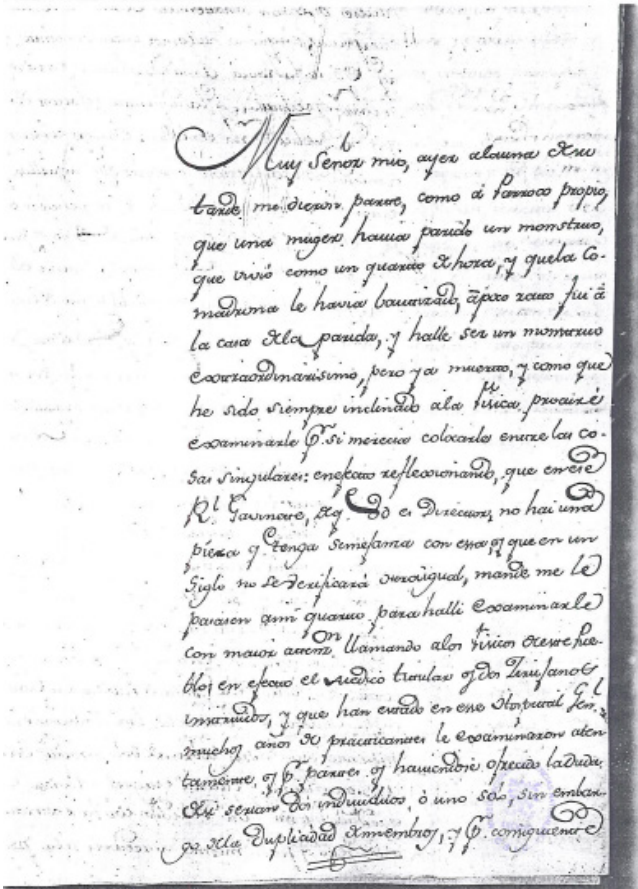 Muy Señor mio, ayer aluna de la
tarde me dieron parte, como á Parroco propio,
que una muger havia parido un monstruo,
que vivió como un quarto de hora, y que la Co-
madrona le havia bautizado, á poco rato fui á
la casa dela parida, y halle ser un monstruo
extraordinarisimo, pero ya muerto, y como que
he sido siempre inclinado ala fisica, procuré
examinarle p.r si merecia colocarlo entre las co-
sas singulares: en efecto reflexionando, que en ese
R.l Gavinete, de q.e Vd es Director, no hai una
pieza q.e tenga semejanza con esta, y que en un
siglo no se verificará otro igual, mande me le
pasasen ami quarto para halli examinarle
con maior atten.on llamando alos fisicos de este Pue-
blo: en efecto el Medico titular y dos Zirujanos
intruidos, y que han estado en ese Hospital Gen.l
muchos años de practicantes le examinaron aten
tamente, y p.r partes y haviendose ofrecido la duda,
de si serian dos individuos, ó uno solo, sin embar-
go dela duplicidad de miembros, y p.r consiguiente